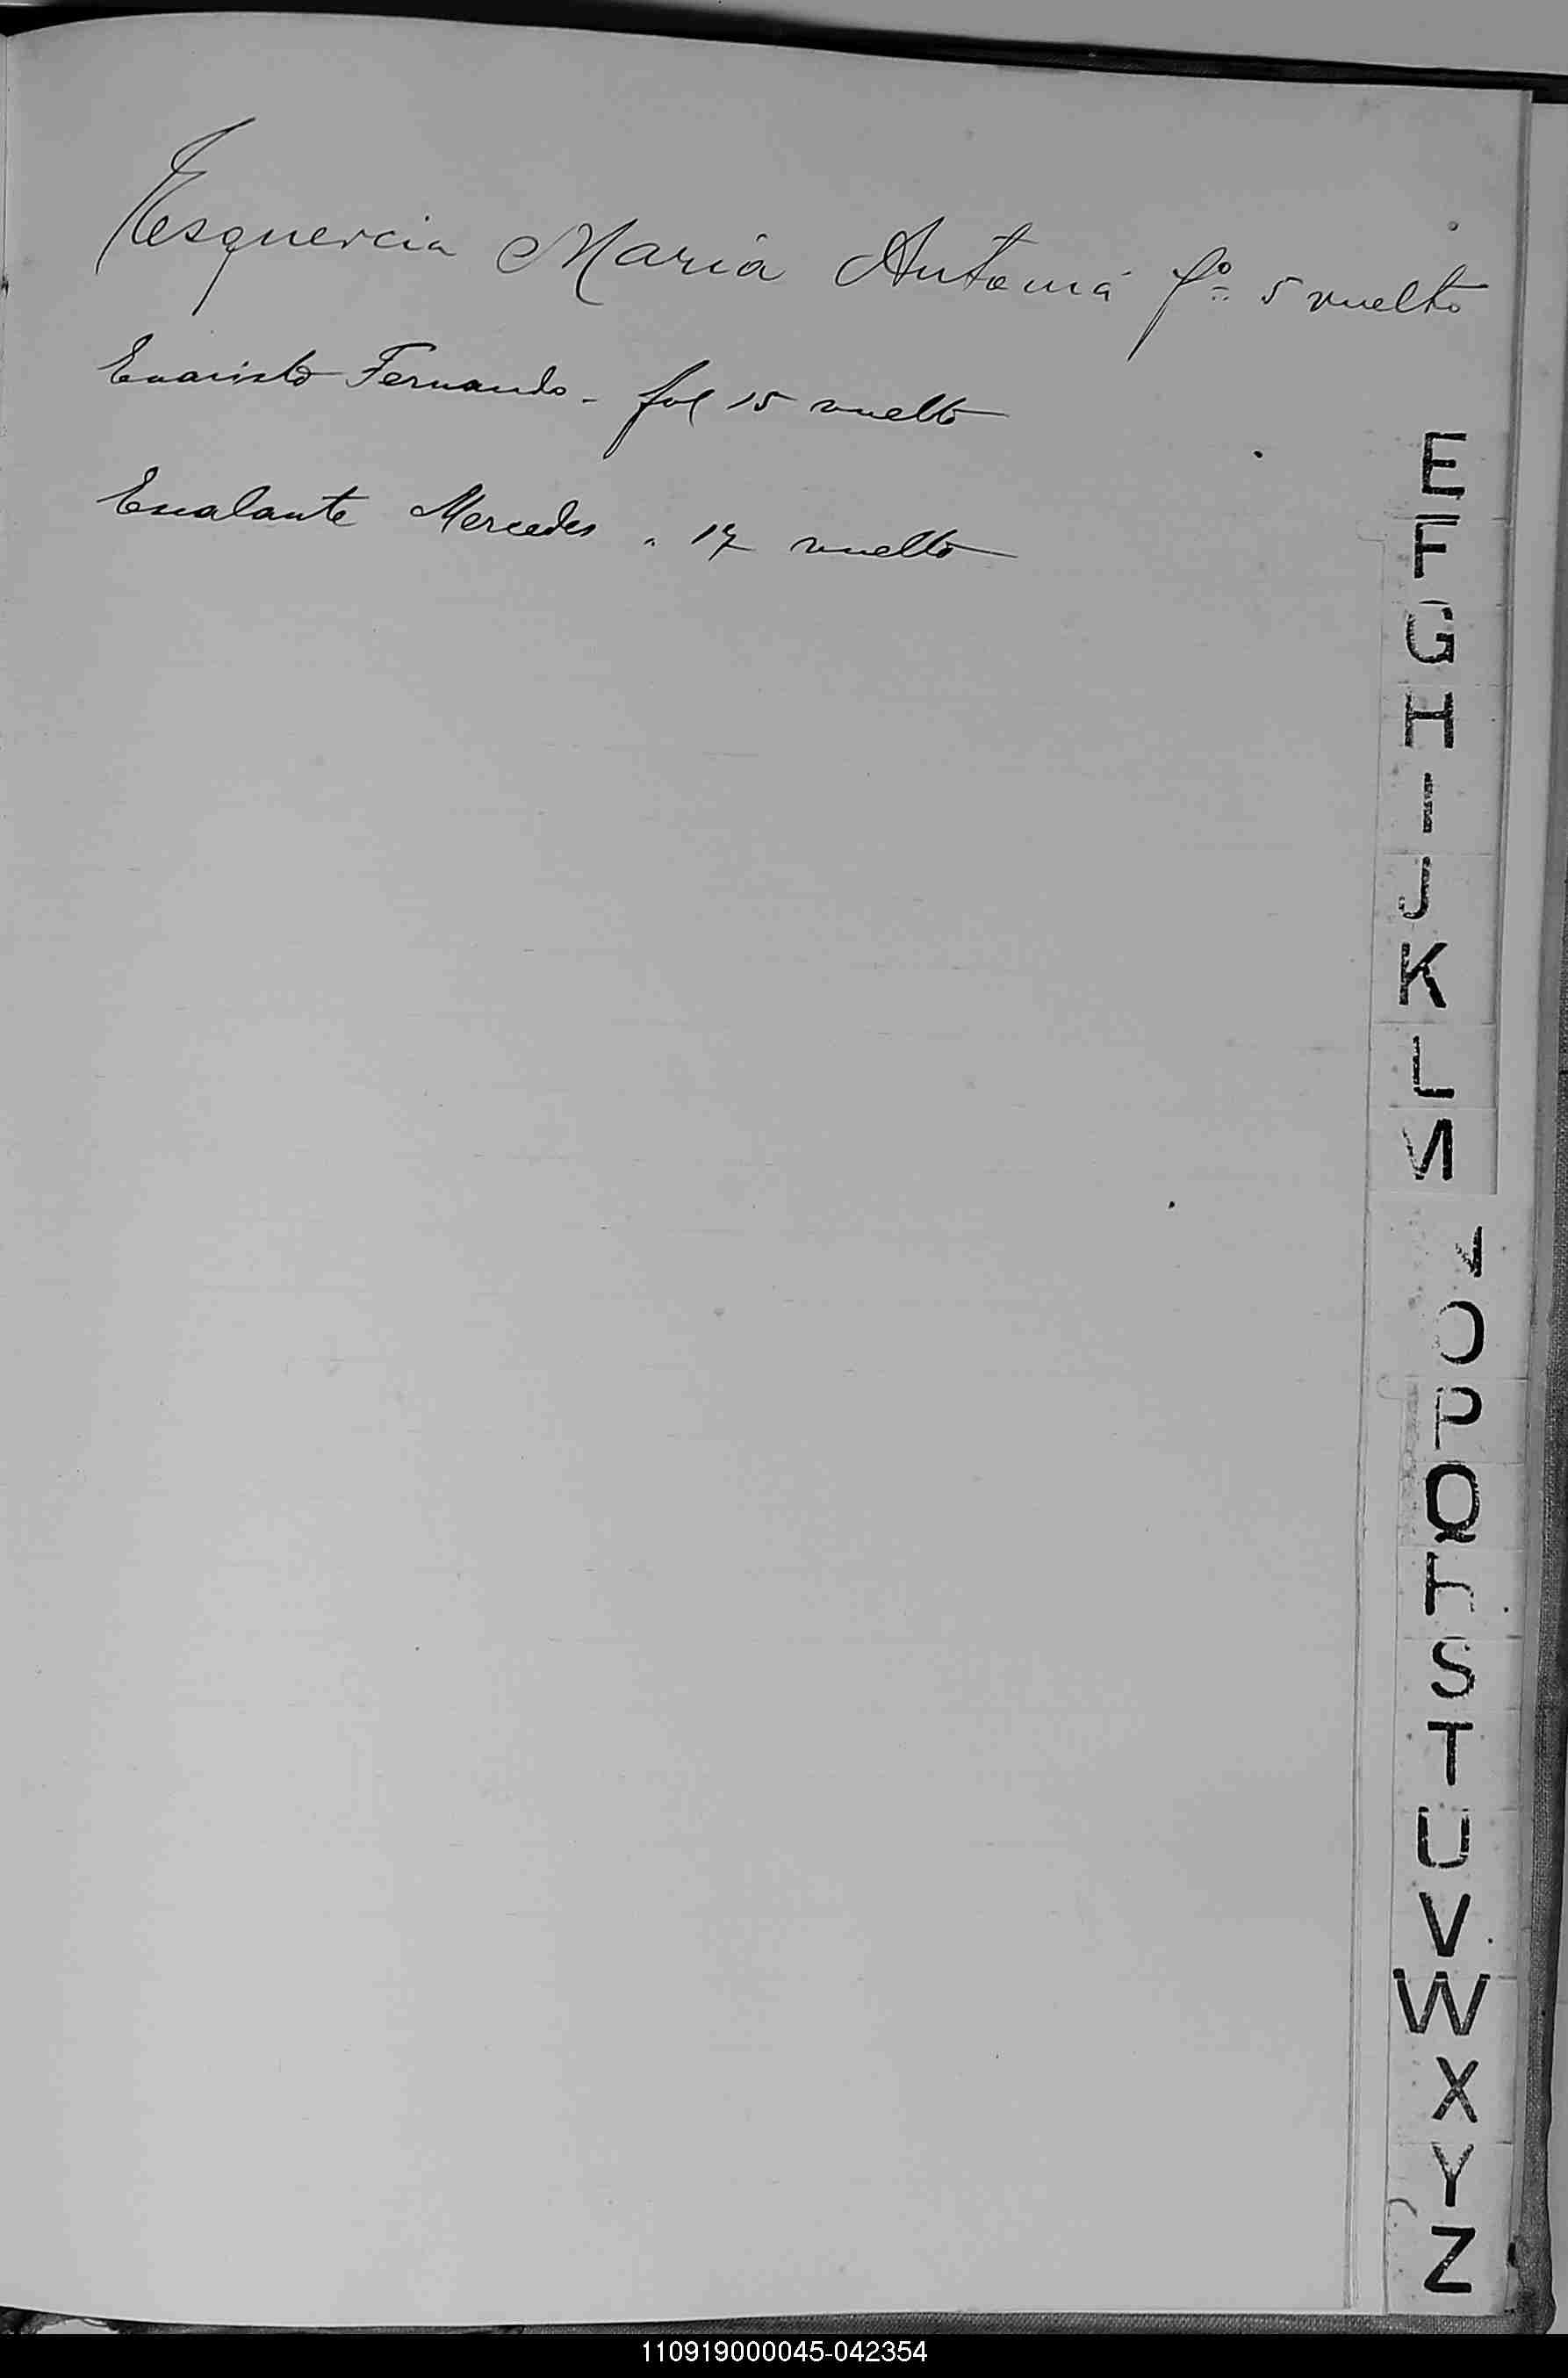 Esquercia Maria Antonia fº 5 vuelto
Evaristo Fernando - fol 15 vuelto
Escalante Mercedes " 17 vuelto
E
F
G
H
I
J
K
L
M
N
O
P
Q
R
S
T
U
V
W
X
Y
Z
110919000045-042354